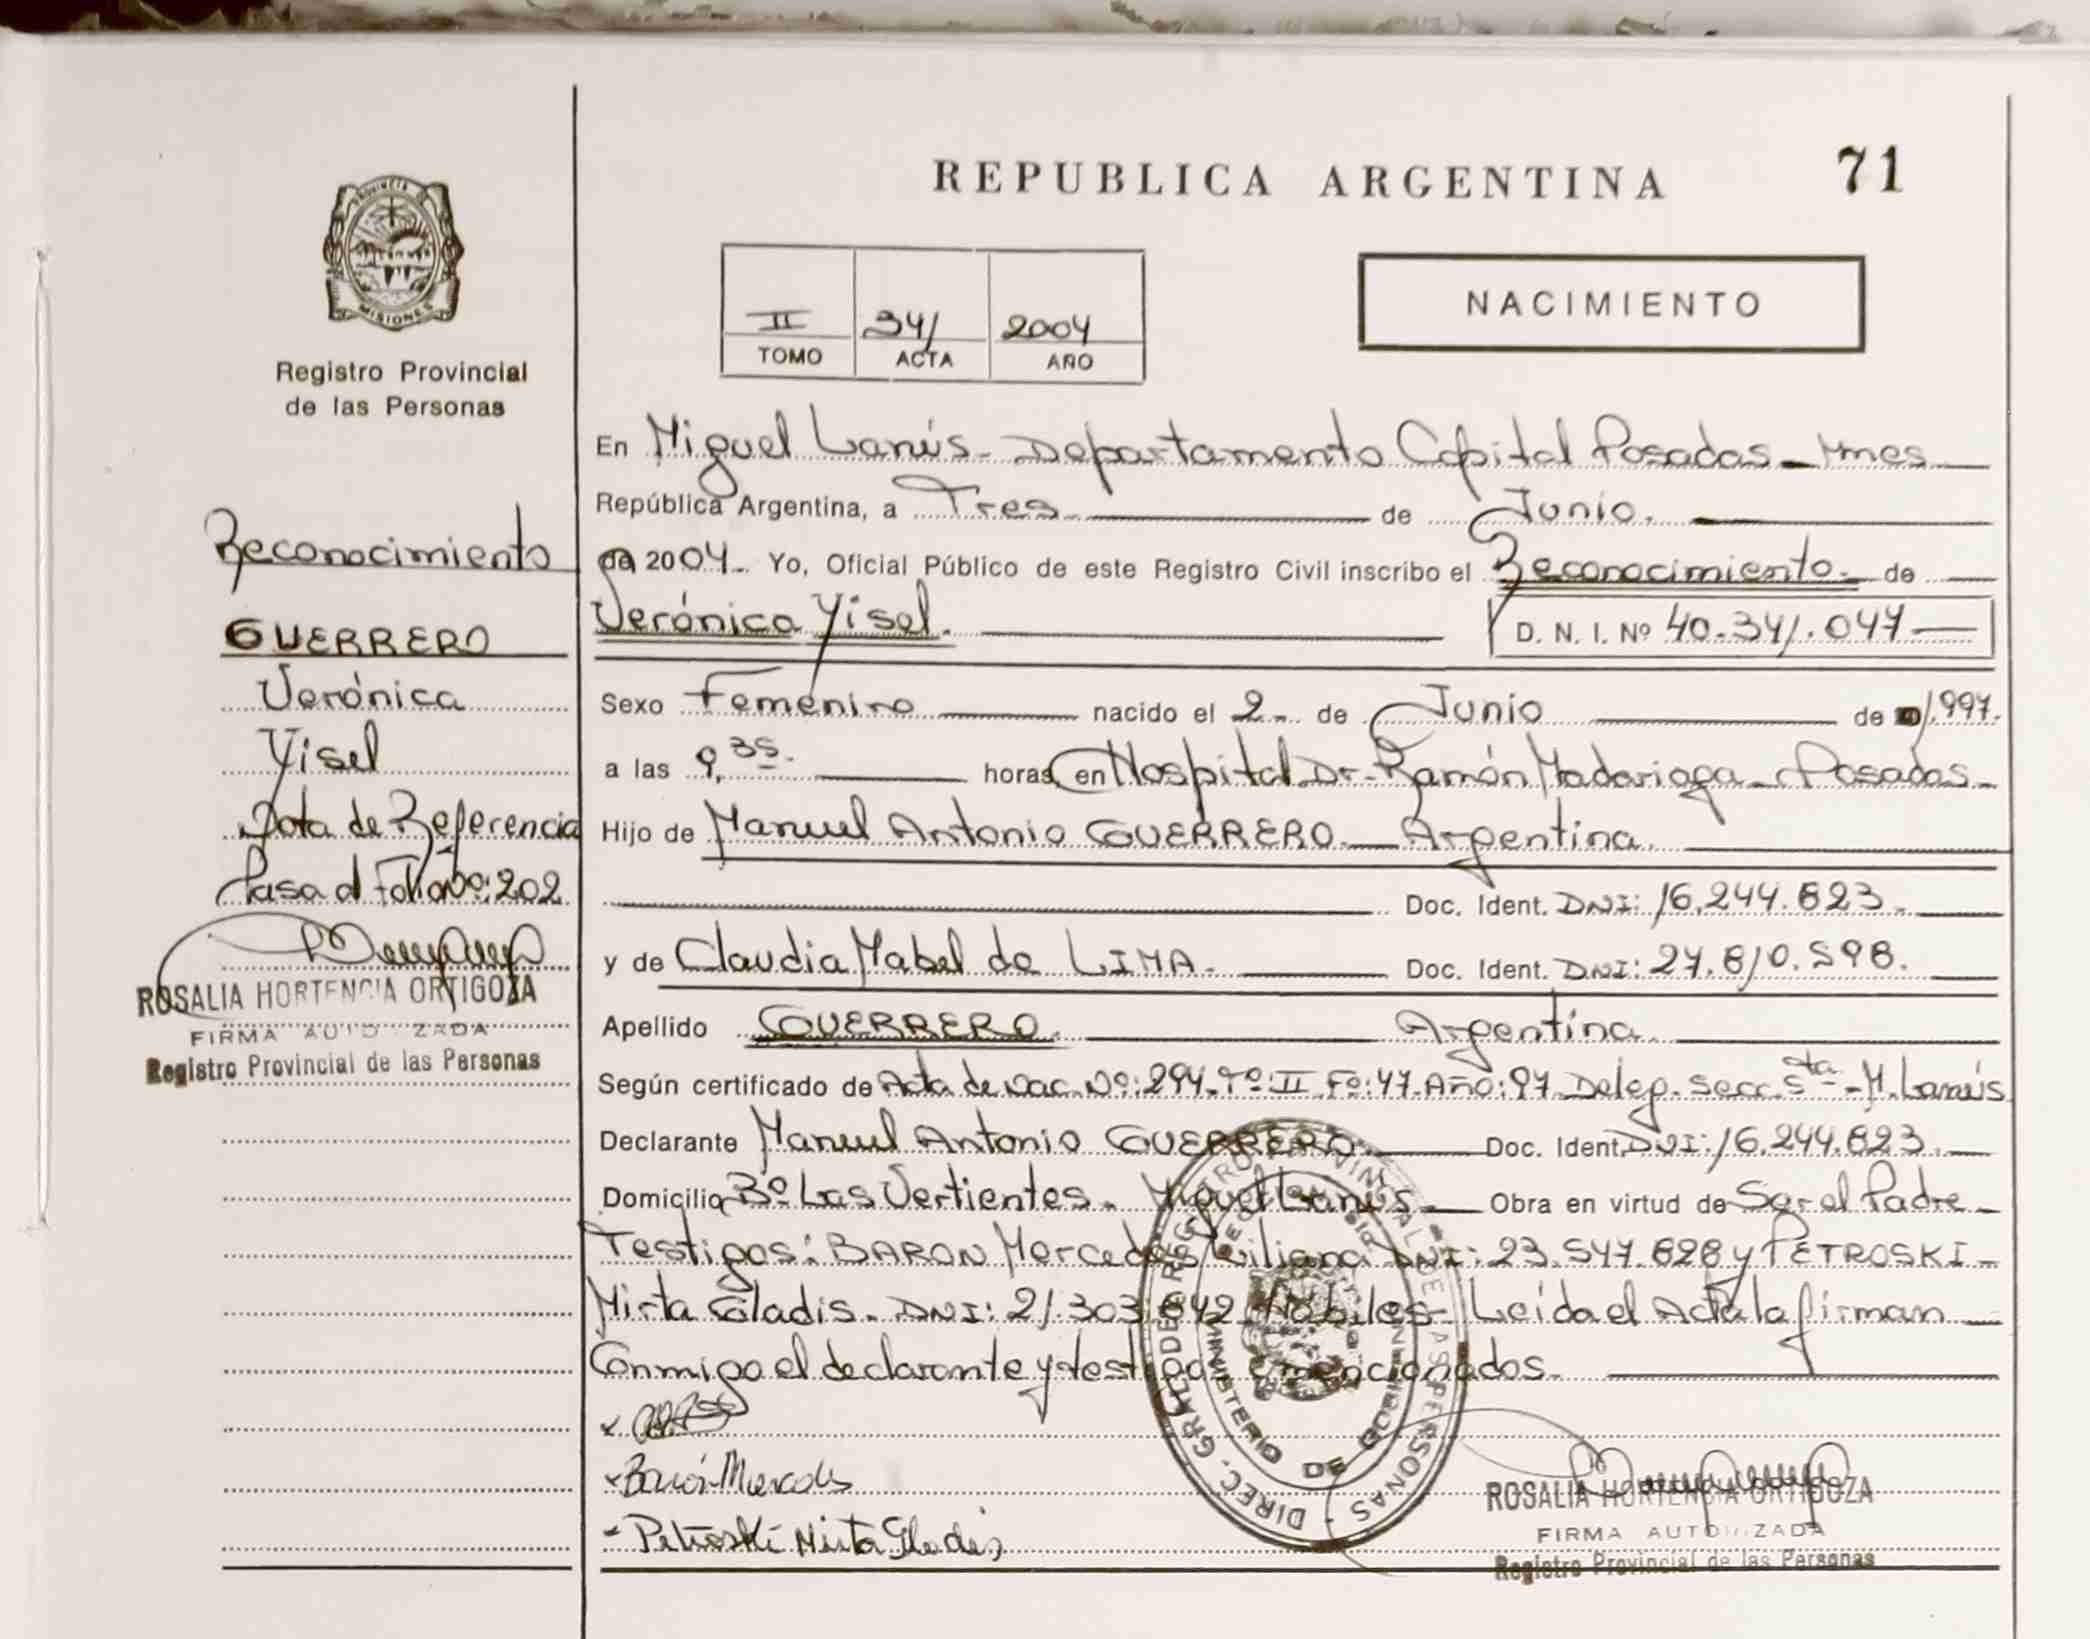 REPUBLICA ARGENTINA
71
PROVINCIA
MISIONES
Registro Provincial
de las Personas
II
341
2004
TOMO
ACTA
AÑO
NACIMIENTO
Reconocimiento
GUERRERO
Verónica
Yisel
Nota de Referencia
Pasa al Folio Nº: 202
ROSALIA HORTENCIA ORTIGOZA
FIRMA AUTORIZADA
Registro Provincial de las Personas
En Miguel Lanús - Departamento Capital Posadas - Mnes
República Argentina, a Tres de Junio.
de 2004. Yo, Oficial Público de este Registro Civil inscribo el Reconocimiento de
Verónica Yisel. D. N. I. Nº 40.341.047
Sexo Femenino nacido el 2 de Junio de 1.997.
a las 9,35 horas, en Hospital Dr. Ramón Madariaga - Posadas -
Hijo de Manuel Antonio GUERRERO. Argentina.
Doc. Ident. DNI: 16.244.823.
y de Claudia Mabel de LIMA. Doc. Ident. DNI: 27.810.598.
Apellido GUERRERO. Argentina.
Según certificado de Acta de Nac. Nº: 294. Tº: II Fº: 47. Año: 97. Deleg. Secc. 5ta - M. Lanús
Declarante Manuel Antonio GUERRERO. Doc. Ident. DNI: 16.244.823.
Domicilio Bº Las Vertientes. Miguel Lanús Obra en virtud de Ser el Padre
Testigos: BARON Mercedes Liliana DNI: 23.547.828 y PETROSKI
Mirta Gladis. DNI: 21.303.642 Hábiles - Leída el Acta la firman
Conmigo el declarante y testigos mencionados.
Barón Mercedes
Petroski Mirta Gladis
DIREC. GRAL DE REGISTRO PROVINCIAL DE LAS PERSONAS
MINISTERIO DE GOBIERNO
ROSALIA HORTENCIA ORTIGOZA
FIRMA AUTORIZADA
Registro Provincial de las Personas